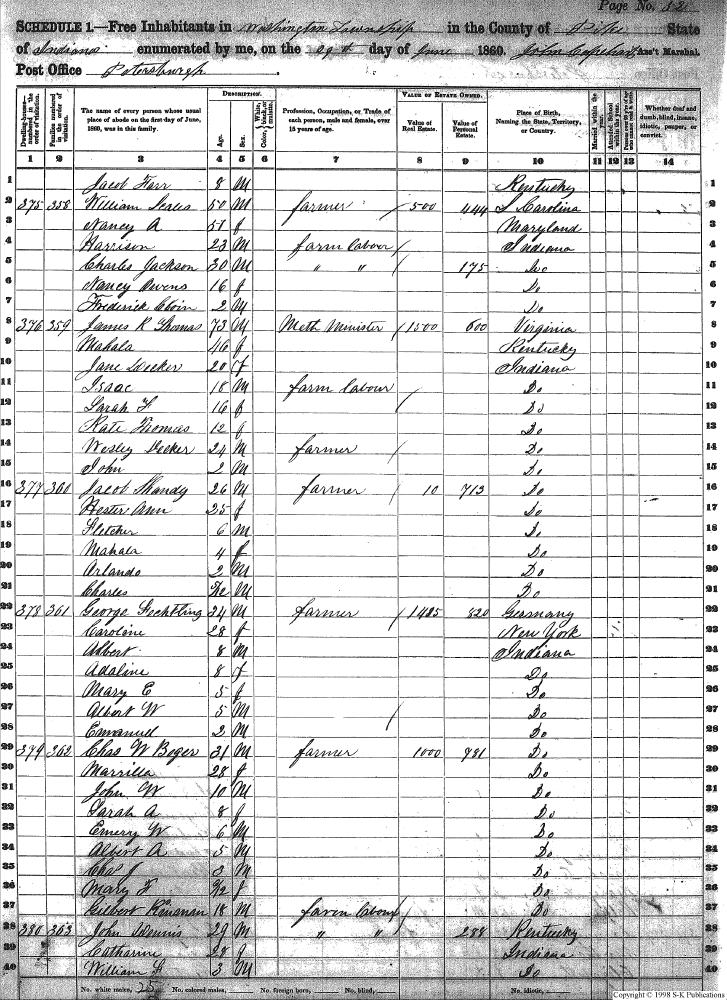 Page No. 52
SCHEDULE 1.—Free Inhabitants in Washington Township in the County of Pike State
of Indiana enumerated by me, on the 29th day of June 1860. John Capehart, Ass't Marshal.
Post Office Petersburgh.
Dwelling-houses—numbered in the order of visitation.
Families numbered in the order of visitation.
The name of every person whose usual place of abode on the first day of June, 1860, was in this family.
DESCRIPTION.
Age.
Sex.
Color, White, black, or mulatto.
Profession, Occupation, or Trade of each person, male and female, over 15 years of age.
VALUE OF ESTATE OWNED.
Value of Real Estate.
Value of Personal Estate.
Place of Birth, Naming the State, Territory, or Country.
Married within the year.
Attended School within the year.
Whether deaf and dumb, blind, insane, idiotic, pauper, or convict.
1 2 3 4 5 6 7 8 9 10 11 12 13 14
1 Jacob Farr 8 M Kentucky 1
2 375 358 William Scales 50 M farmer 1500 444 S Carolina 2
3 Nancy A 51 f Maryland 3
4 Harrison 23 M farm labour Indiana 4
5 Charles Jackson 30 M " " 175 Do 5
6 Nancy Owens 16 f Do 6
7 Frederick 2 M Do 7
8 376 359 James R Thomas 73 M Meth Minister 1500 600 Virginia 8
9 Mahala 46 f Kentucky 9
10 Jane Decker 20 f Indiana 10
11 Isaac 18 M farm labour Do 11
12 Sarah F 16 f Do 12
13 Kate Thomas 12 f Do 13
14 Wesley Decker 24 M farmer Do 14
15 John 2 M Do 15
16 377 360 Jacob Shandy 26 M farmer 10 713 Do 16
17 Hester Ann 25 f Do 17
18 Fletcher 6 M Do 18
19 Mahala 4 f Do 19
20 Arlando 2 M Do 20
21 Charles M Do 21
22 378 361 George Fechtling 34 M farmer 1485 820 Germany 22
23 Caroline 28 f New York 23
24 Albert 8 M Indiana 24
25 Adaline 8 f Do 25
26 Mary E 5 f Do 26
27 Albert W 5 M Do 27
28 Emmanuel 2 M Do 28
29 379 362 Chas W Boger 31 M farmer 1000 781 Do 29
30 Marrilla 28 f Do 30
31 John W 10 M Do 31
32 Sarah A 8 f Do 32
33 Emery W 6 M Do 33
34 Albert A 5 M Do 34
35 Chas J 3 M Do 35
36 Mary F f Do 36
37 Gilbert Kinsman 18 M farm labour Do 37
38 380 363 John Dennis 29 M " " 288 Kentucky 38
39 Catharine 28 f Indiana 39
40 William H 3 M Do 40
No. white males, 25 No. colored males, No. foreign born, No. blind, No. idiotic,
Copyright © 1998 S-K Publications